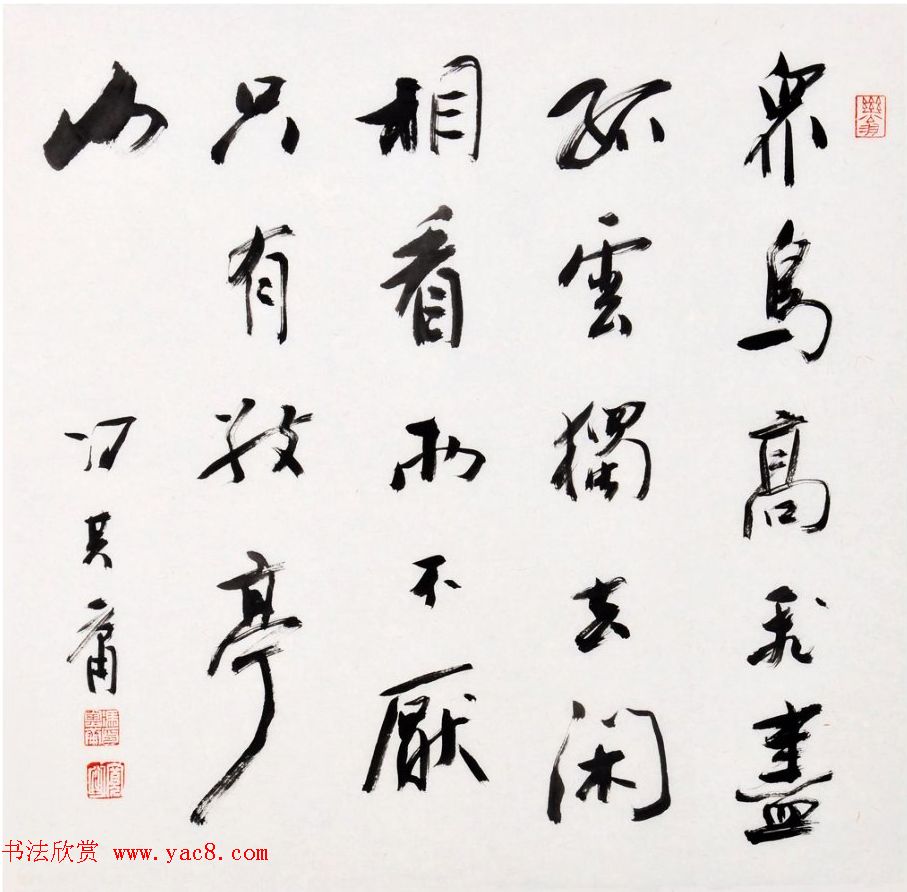 眾鳥高飛盡
孤雲獨去閑
相看兩不厭
只有敬亭
山
馮其庸
书法欣赏 www.yac8.com